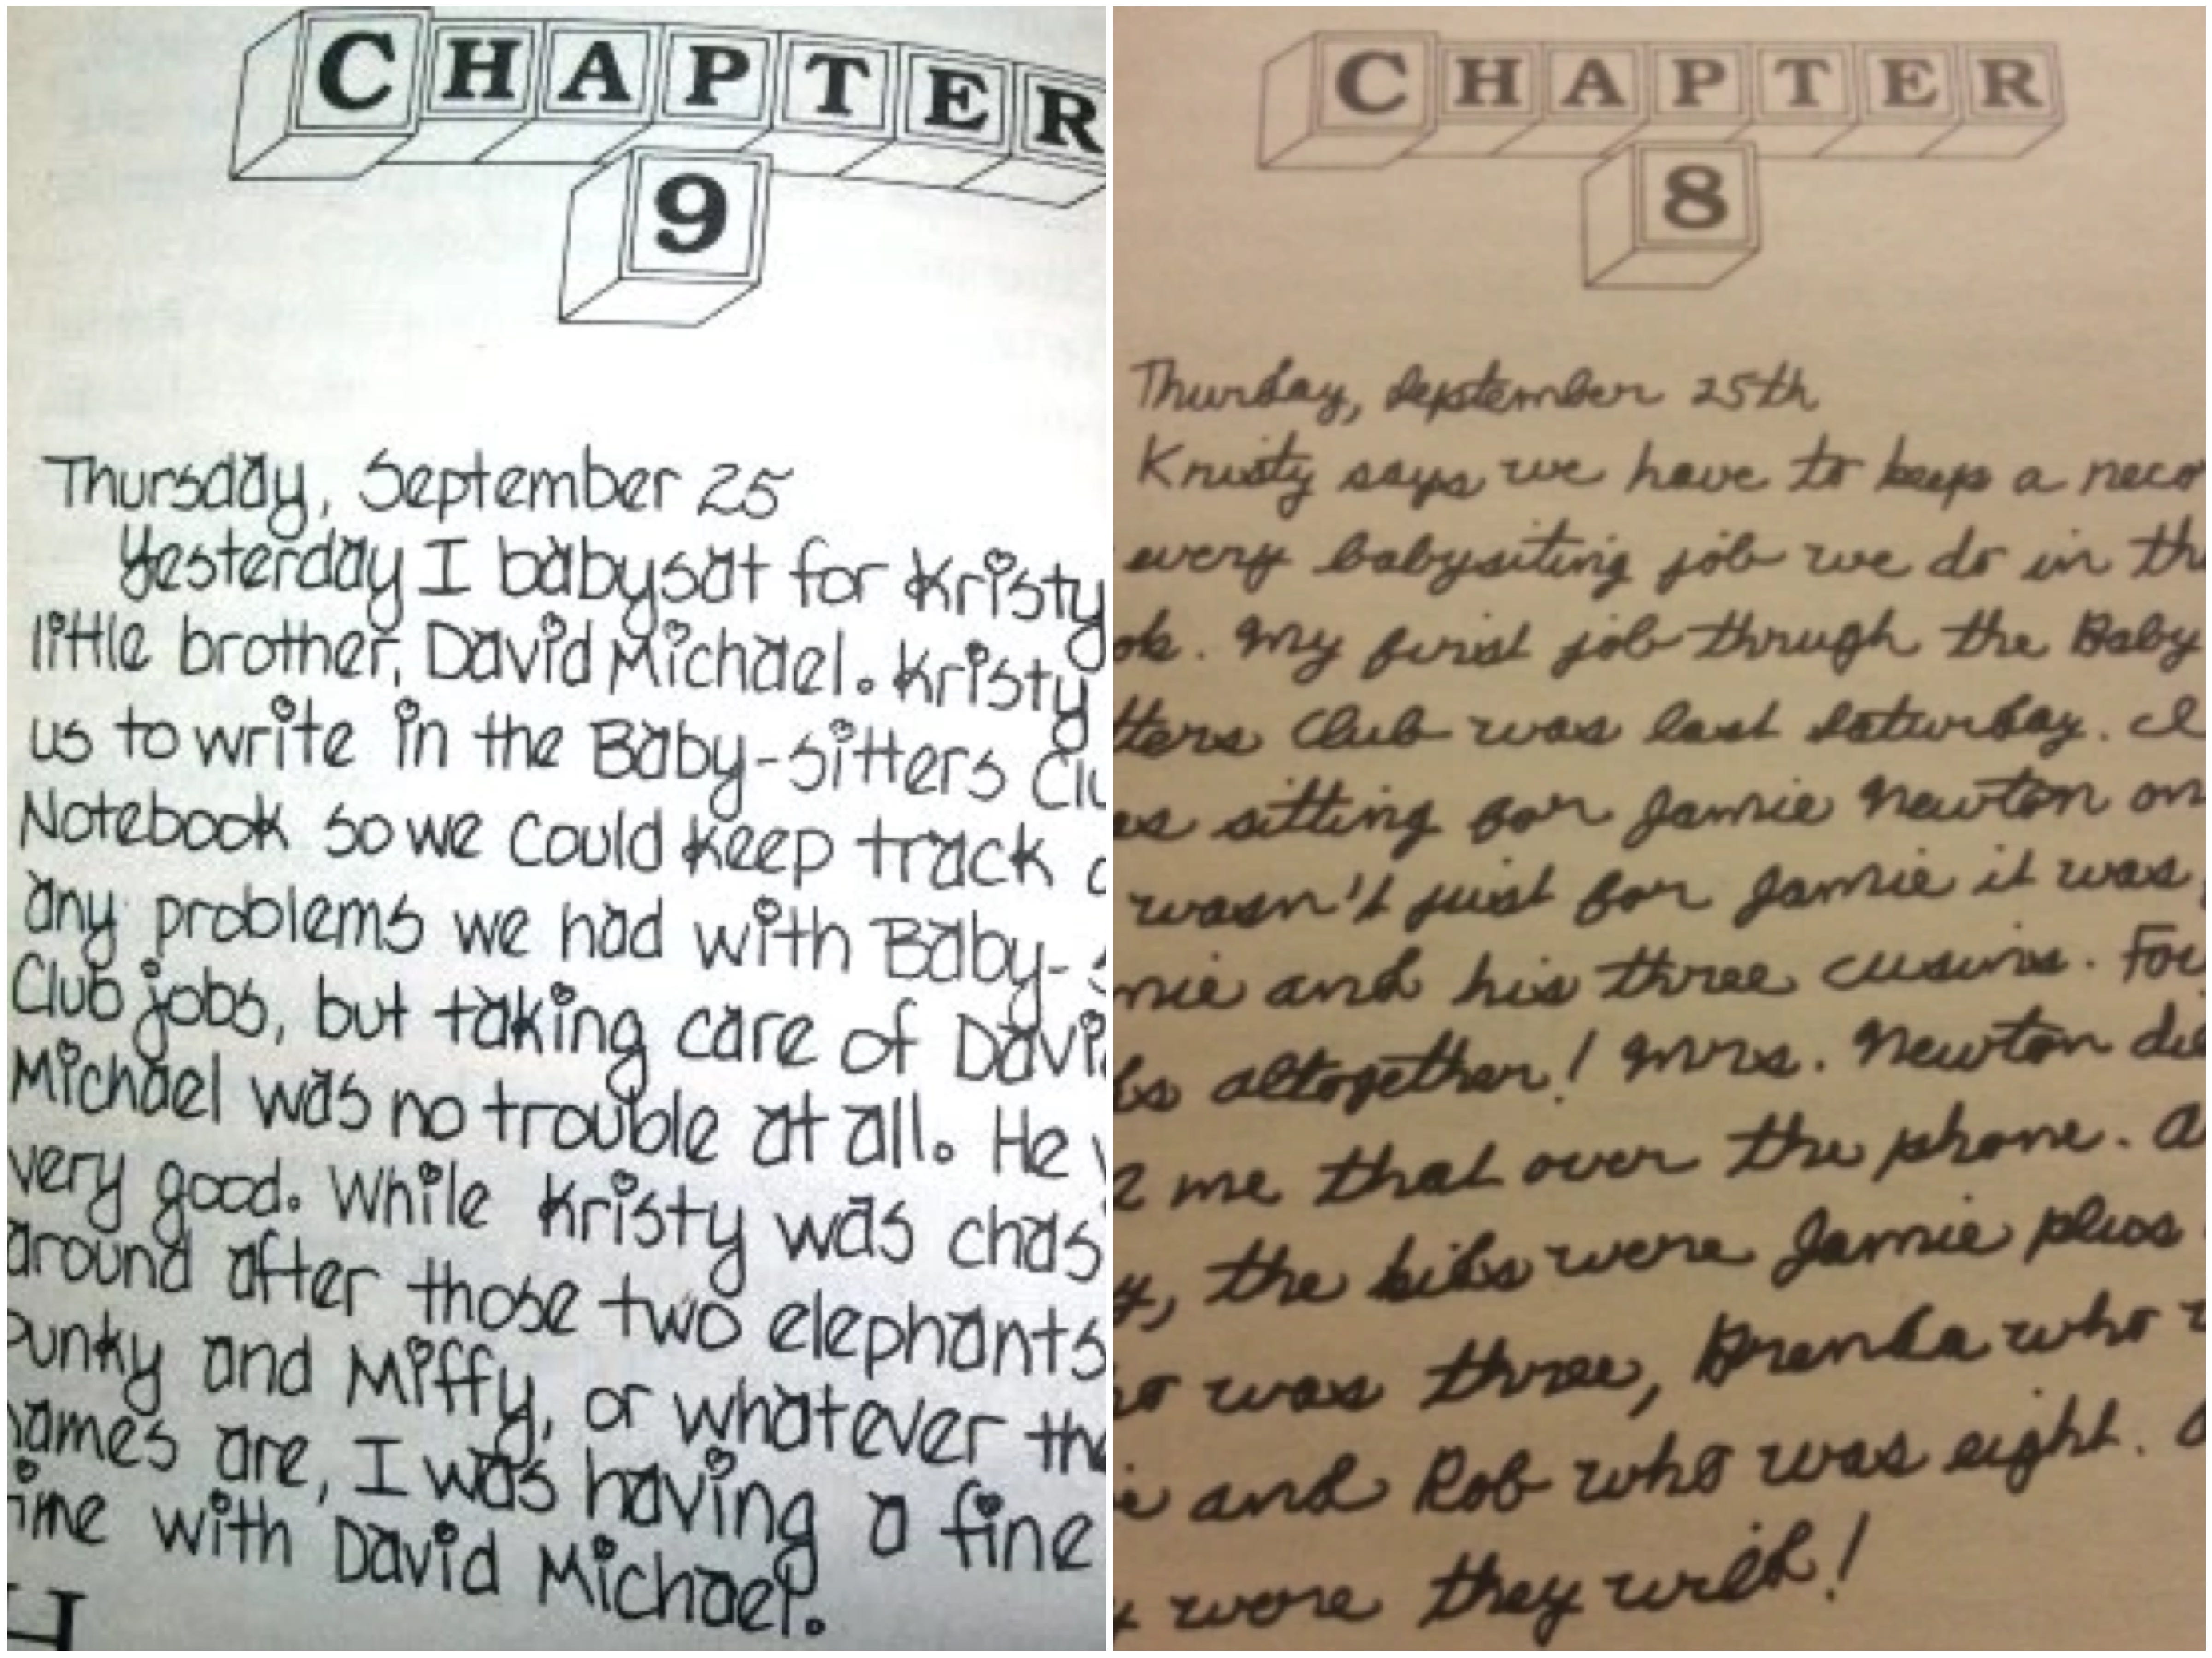 CHAPTER
9
Thursday, September 25
Yesterday I babysat for Kristy
little brother, David Michael. Kristy
us to write in the Baby-sitters Clu
Notebook so we could keep track o
any problems we had with Baby-s
Club jobs, but taking care of Davi
Michael was no trouble at all. He w
very good. While Kristy was chas
around after those two elephants
Punky and Miffy, or whatever the
names are, I was having a fine
time with David Michael.
CHAPTER
8
Thurday, September 25th
Kristy says we have to keep a reco
every babysiting job we do in th
ok. My first job thrugh the Baby
tters Club was last Saturday. I
as sitting for Jamie Newton on
wasn't just for Jamie it was
mie and his three cusins. Fou
ds altogether! Mrs. Newton di
me that over the phone. a
y, the kids were Jamie plus
ho was three, Brenda who w
e and Rob who was eight.
y were they wild!